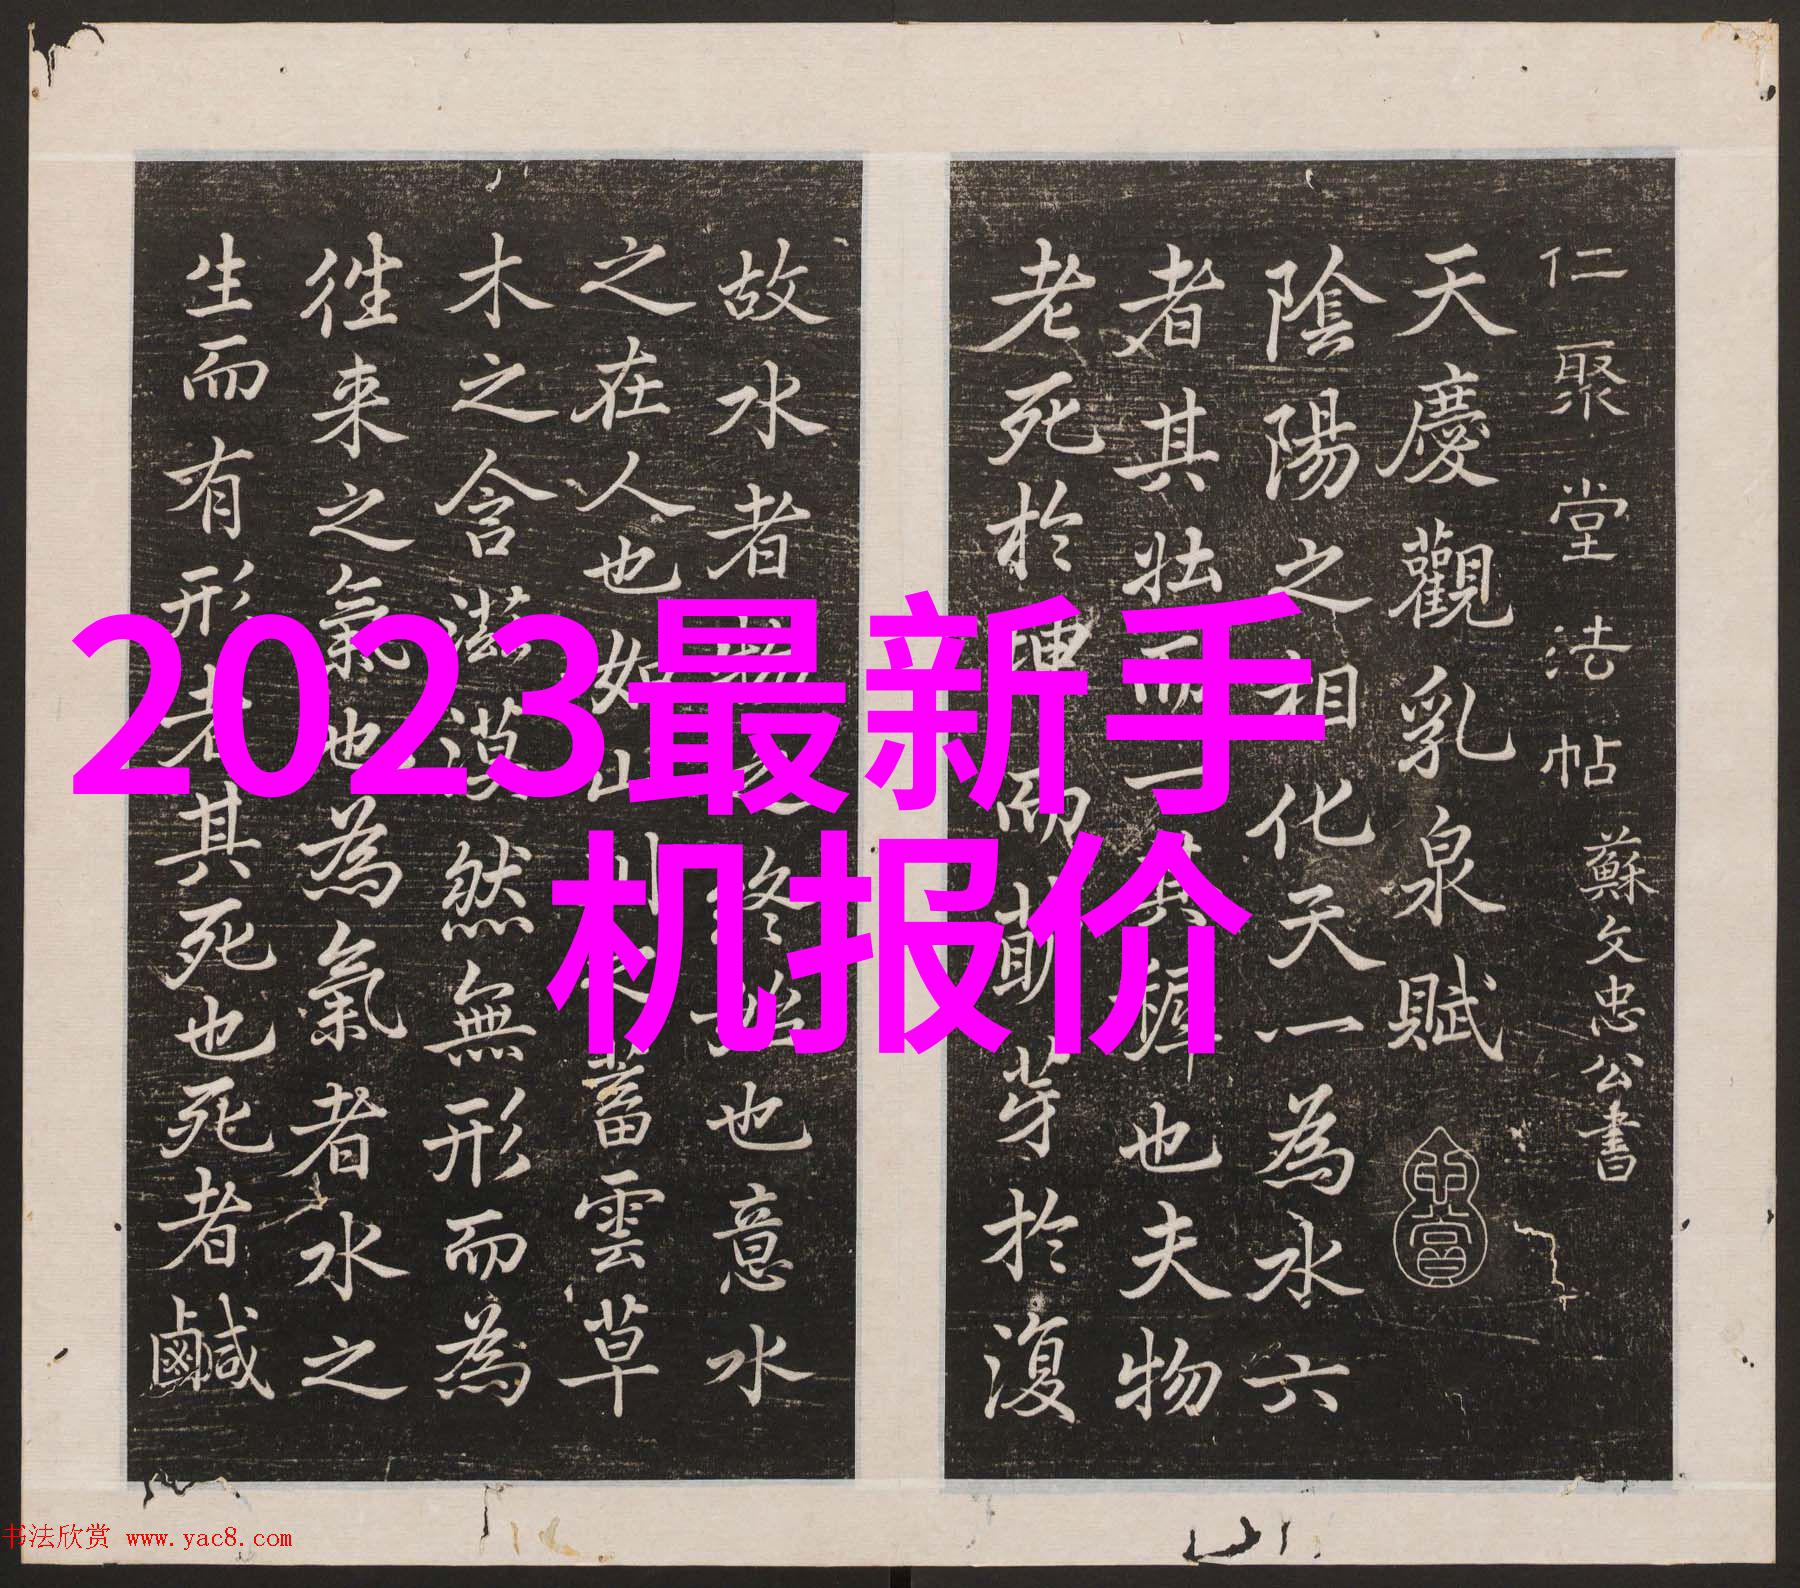 仁聚堂法帖 蘇文忠公書
天慶觀乳泉賦
陰陽之相化天一為水六
者其壯而一其稺也夫物
老死於坤而萌芽於復
故水者物之終始也意水
之在人也如山川之蓄雲草
木之含滋漠然無形而為
往来之氣也為氣者水之
生而有形者其死也死者鹹
2023最新手
机报价
书法欣赏 www.yac8.com